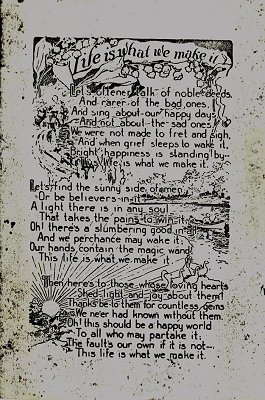 Life is what we make it
Let's oftener talk of noble deeds,
And rarer of the bad ones,
And sing about our happy days,
And not about the sad ones.
We were not made to fret and sigh,
And when grief sleeps to wake it,
Bright happiness is standing by—
This life is what we make it.
Let's find the sunny side of men,
Or be believers in it,
A light there is in any soul
That takes the pains to win it.
Oh! there's a slumbering good in all,
And we perchance may wake it;
Our hands contain the magic wand:
This life is what we make it.
Then here's to those whose loving hearts
Shed light and joy about them!
Thanks be to them for countless gems
We ne'er had known without them.
Oh! this should be a happy world
To all who may partake it;
The fault's our own if it is not—
This life is what we make it.